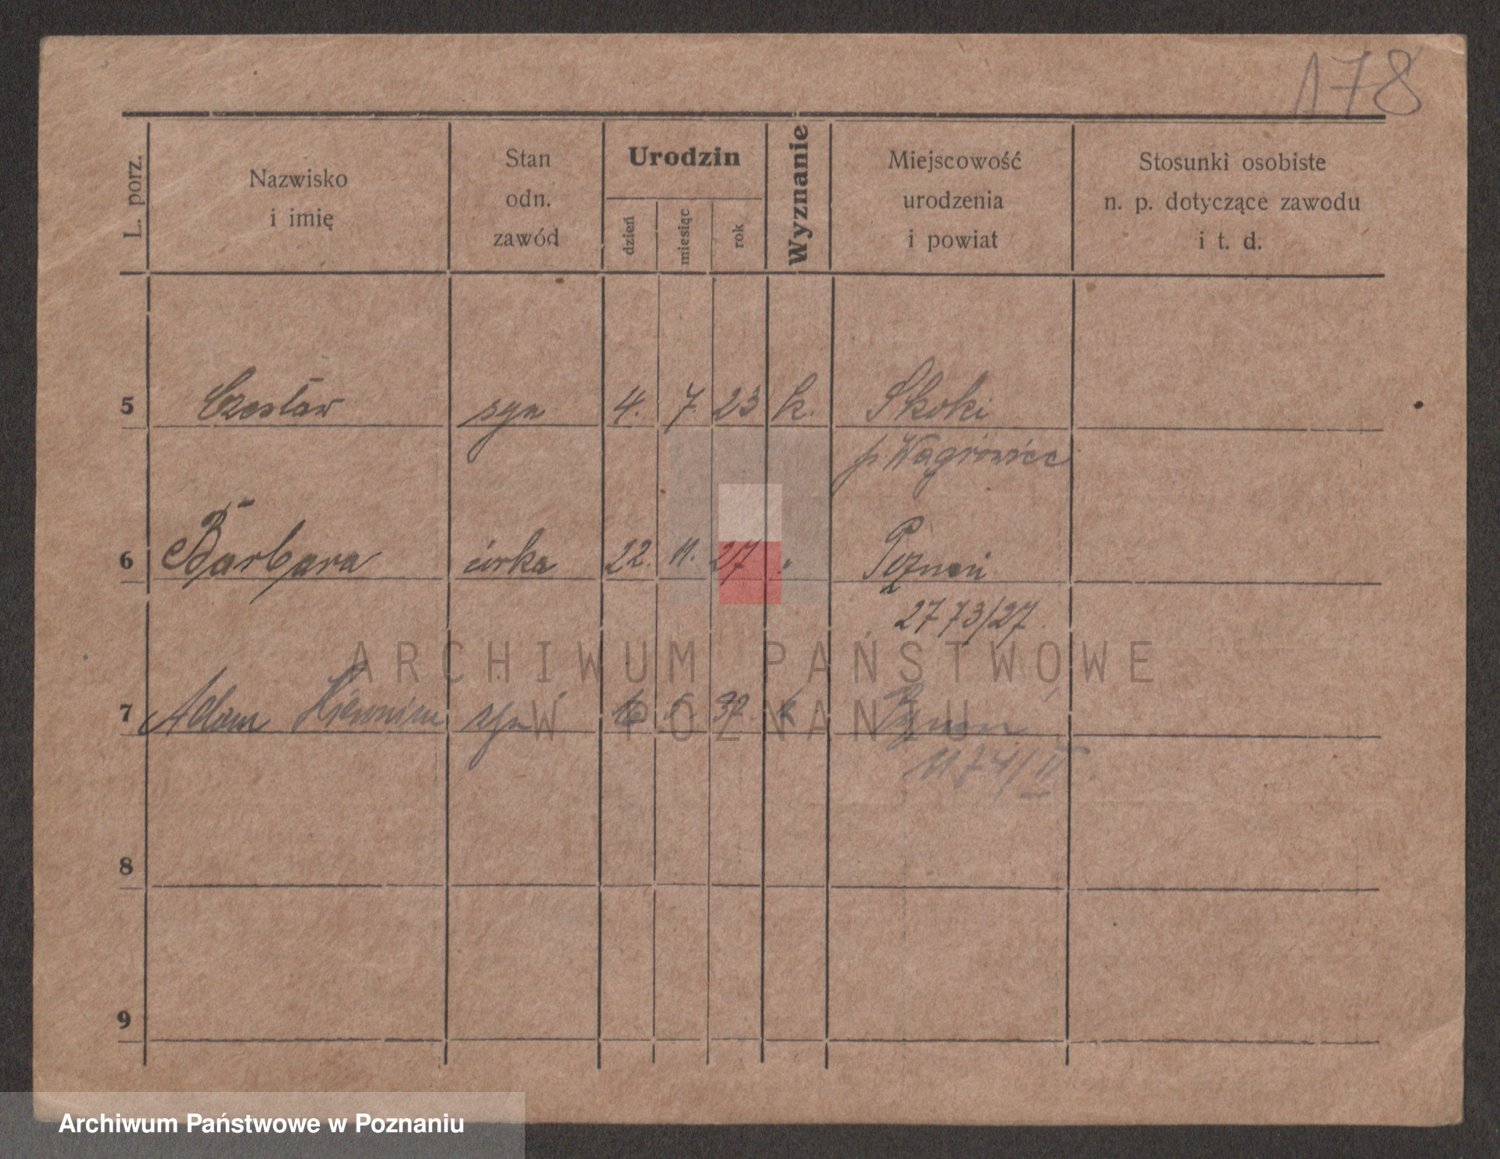 178
L. porz.
Nazwisko
i imię
Stan
odn.
zawód
Urodzin
dzień
miesiąc
rok
Wyznanie
Miejscowość
urodzenia
i powiat
Stosunki osobiste
n. p. dotyczące zawodu
i t. d.
5 Czesław syn 4. 7. 23 k. Skoki
p. Wągrówiec
6 Barbara córka 22. 11. 27 " Poznań
2773/27.
ARCHIWUM PAŃSTWOWE
W POZNANIU
7 Adam Hieronim syn 32. k Poznań
1174/II.
8
9
Archiwum Państwowe w Poznaniu